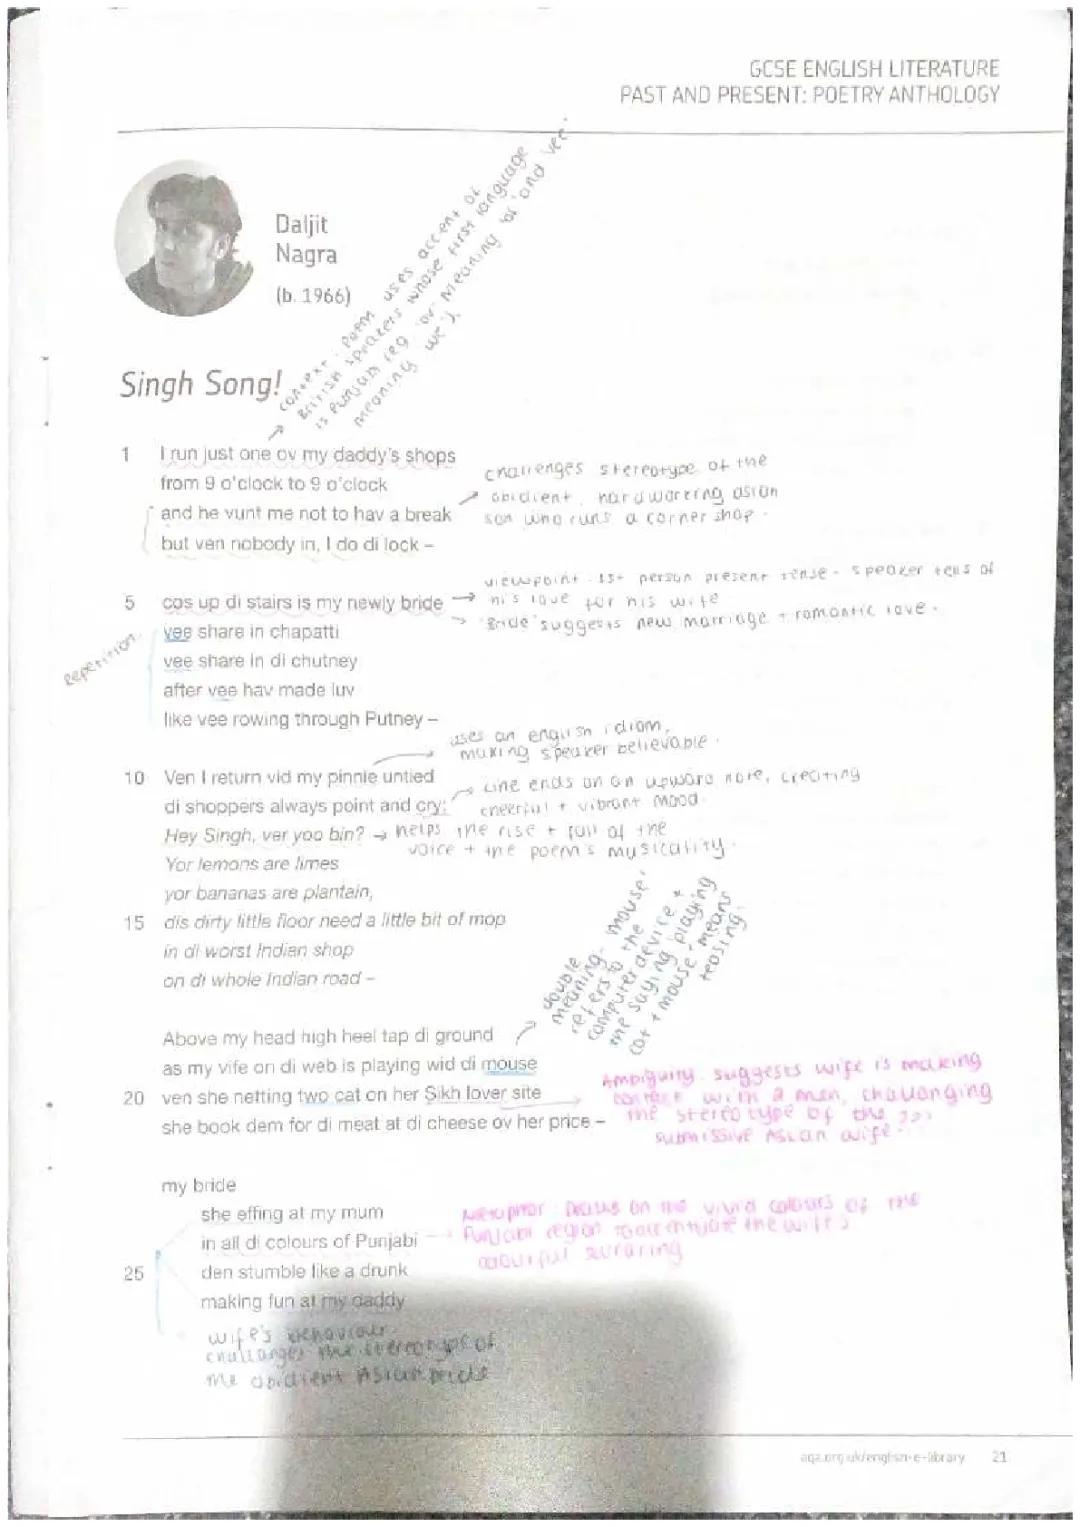 GCSE ENGLISH LITERATURE
PAST AND PRESENT: POETRY ANTHOLOGY
Daljit
Nagra
(b. 1966)
context - Poem uses accent of
British speakers whose first language
is Punjabi (eg 'ov' meaning 'of' and 'vee'
meaning 'we').
Singh Song!
1 I run just one ov my daddy's shops
from 9 o'clock to 9 o'clock
and he vunt me not to hav a break
but ven nobody in, I do di lock –
challenges stereotype of the
obidient, hardworking asian
son who runs a corner shop.
viewpoint - 1st person present tense - speaker tells of
his love for his wife
'Bride' suggests new marriage + romantic love.
5 cos up di stairs is my newly bride
vee share in chapatti
vee share in di chutney
after vee hav made luv
like vee rowing through Putney –
Repetition.
uses an english idiom,
making speaker believable.
10 Ven I return vid my pinnie untied
di shoppers always point and cry:
Hey Singh, ver yoo bin?
Yor lemons are limes
yor bananas are plantain,
15 dis dirty little floor need a little bit of mop
in di worst Indian shop
on di whole Indian road –
Line ends on an upward note, creating
cheerful + vibrant mood.
helps the rise + fall of the
voice + the poem's musicality.
double
meaning- 'mouse'
refers to the
computer device +
the saying 'playing
cat + mouse' means
teasing.
Above my head high heel tap di ground
as my vife on di web is playing wid di mouse
20 ven she netting two cat on her Sikh lover site
she book dem for di meat at di cheese ov her price –
Ambiguity. suggests wife is making
contact with a men, challanging
the stereotype of the
submissive Asian wife.
my bride
she effing at my mum
in all di colours of Punjabi
25 den stumble like a drunk
making fun at my daddy
Metaphor. Draws on the vivid colours of the
Punjabi region to accentuate the wife's
colourful swearing
wife's behaviour
challanges the stereotype of
the obidient Asian bride
aqa.org.uk/english-e-library 21